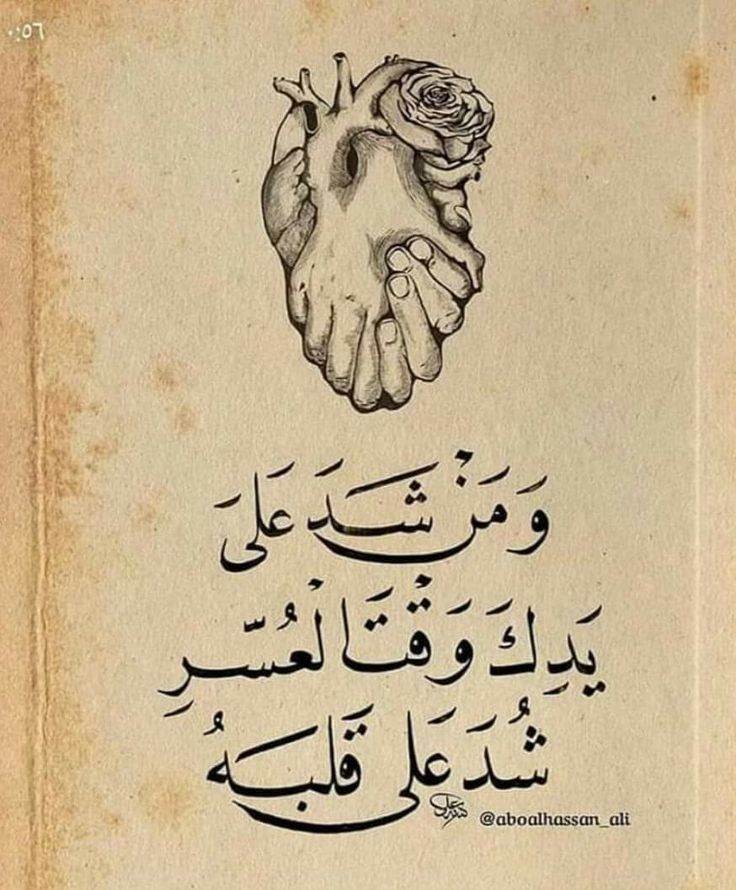 ٠:٥٦
وَمَنْ شَدَ عَلىَ
يَدِكَ وَقْتَ الْعُسّرِ
شُدَ عَلى قَلبَهُ
@aboalhassan_ali